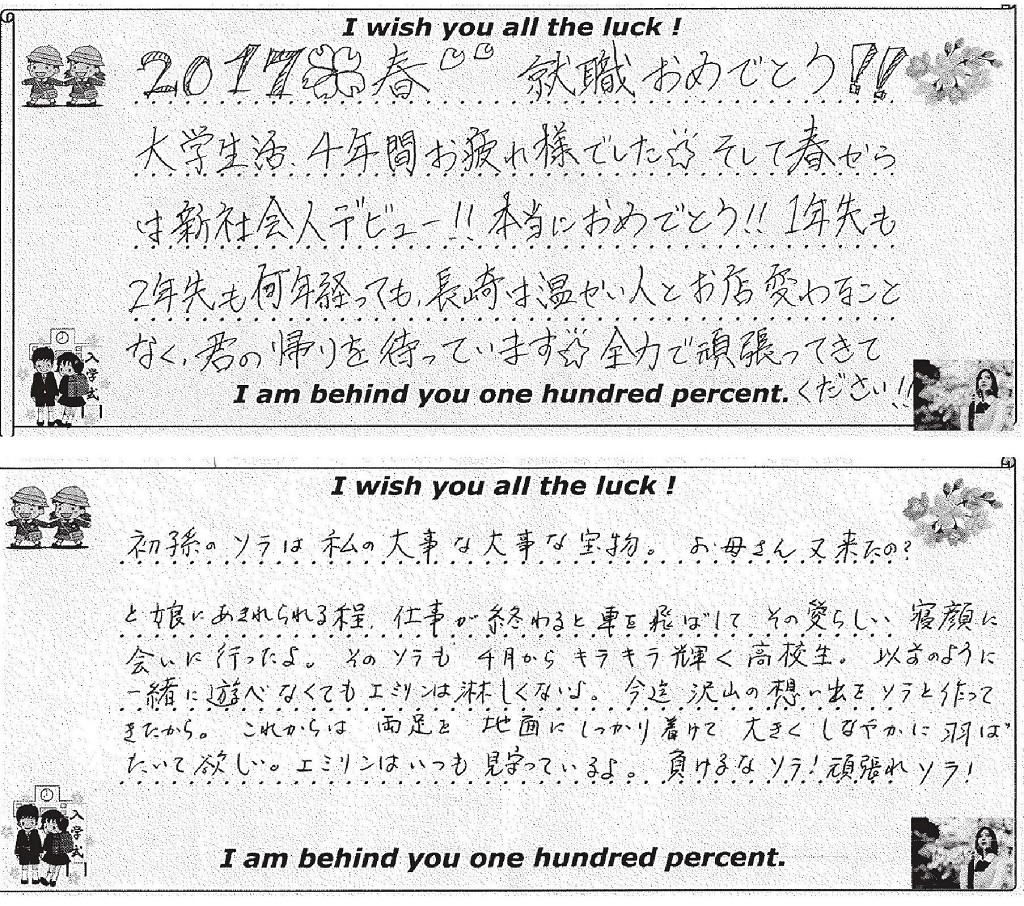 I wish you all the luck !
2017 春 就職おめでとう!!
大学生活、4年間お疲れ様でした☆ そして春から
は新社会人デビュー!! 本当におめでとう!! 1年先も
2年先も何年経っても、長崎は温かい人とお店変わること
なく、君の帰りを待っています☆ 全力で頑張ってきて
ください!!
I am behind you one hundred percent.
入学式
I wish you all the luck !
初孫のソラは私の大事な大事な宝物。 お母さん又来たの?
と娘にあきれられる程、仕事が終わると車を飛ばして その愛らしい 寝顔に
会いに行ったよ。 そのソラも 4月からキラキラ輝く高校生。 以前のように
一緒に遊べなくてもエミリンは淋しくないよ。 今迄 沢山の想い出を ソラと作って
きたから。 これからは 両足を 地面にしっかり着けて 大きく しなやかに 羽ば
たいて欲しい。エミリンはいつも 見守っているよ。 負けるなソラ!頑張れソラ!
入学式
I am behind you one hundred percent.